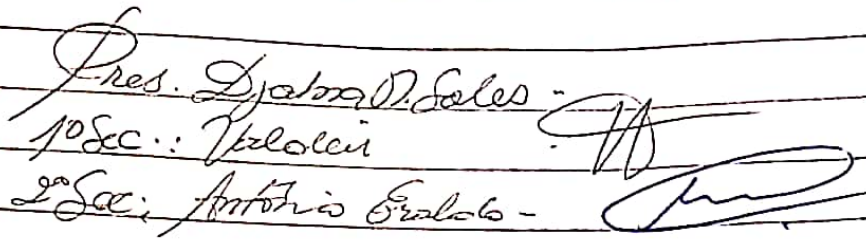 Pres. Djalma D. Sales -
1º Sec.: Valdeir
2º Sec: Antônio Eraldo -